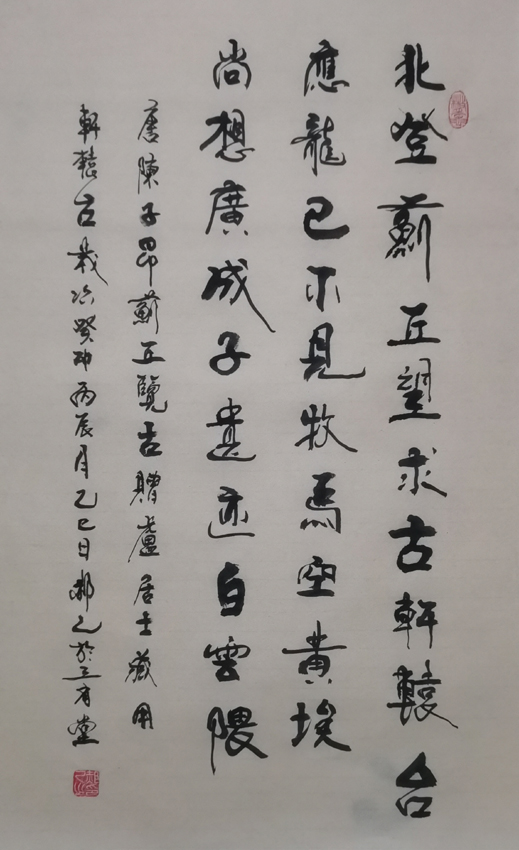 北登薊丘望求古軒轅台
應龍已不見牧馬空黄埃
尚想廣成子遺迹白雲隈
唐陳子昂薊丘覽古贈盧居士藏用
軒轅台一首 癸卯丙辰月乙巳日郝之於三育堂